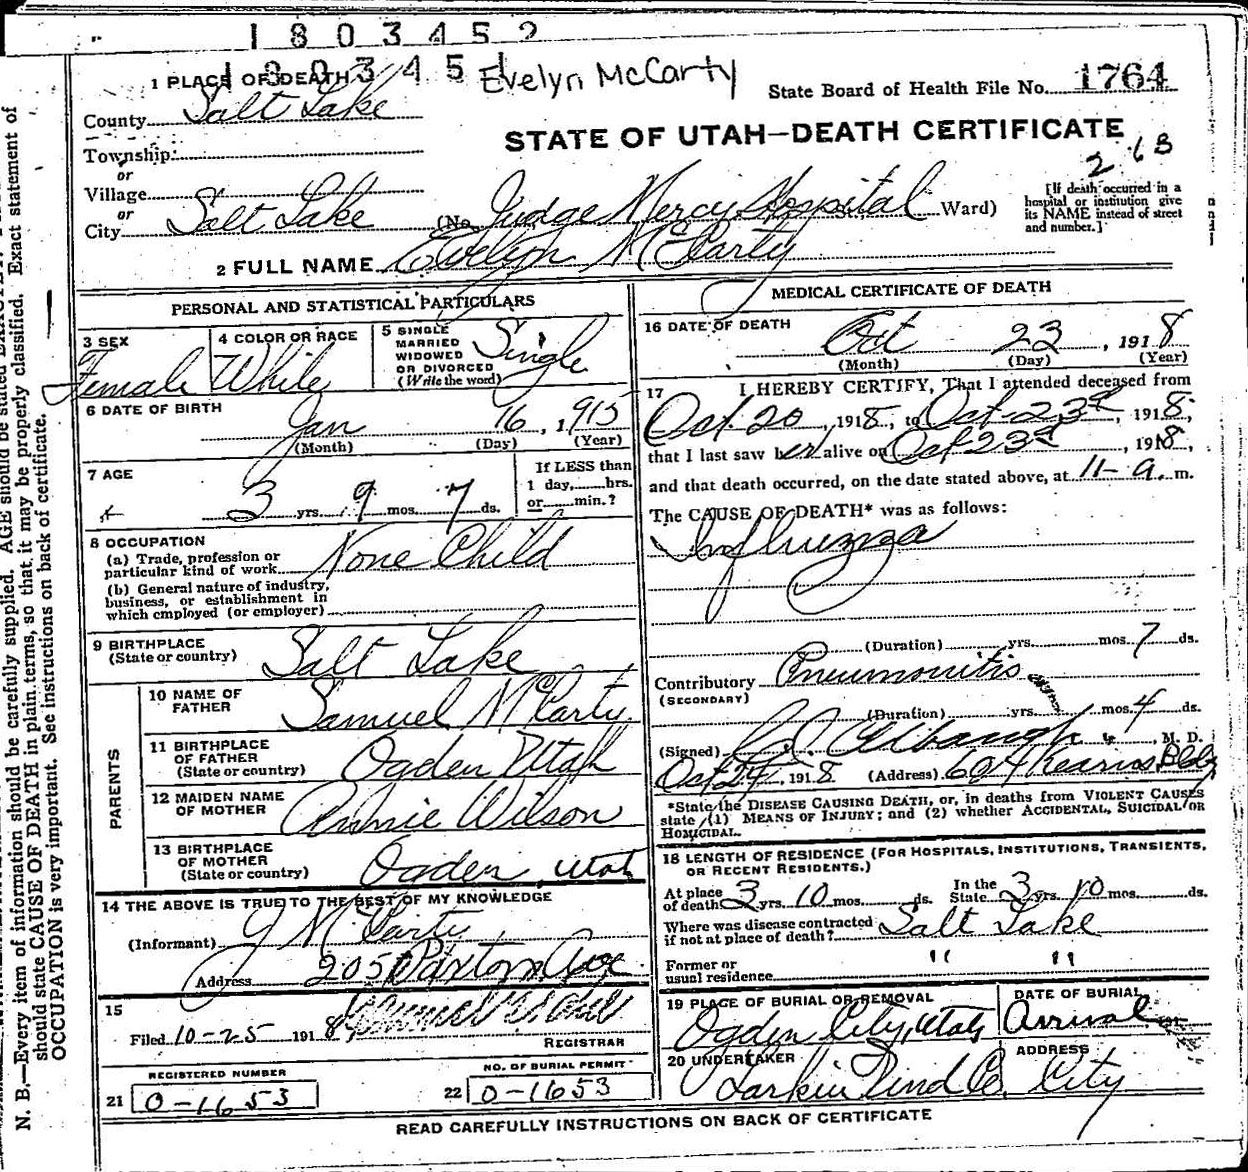 1803452
180345
Evelyn McCarty
State Board of Health File No. 1764
STATE OF UTAH—DEATH CERTIFICATE
263
1 PLACE OF DEATH
County Salt Lake
Township
or
Village
or
City Salt Lake (No. Judge Mercy Hospital Ward)
[If death occurred in a
hospital or institution give
its NAME instead of street
and number.]
2 FULL NAME Evelyn McCarty
PERSONAL AND STATISTICAL PARTICULARS
3 SEX
Female
4 COLOR OR RACE
White
5 SINGLE
MARRIED
WIDOWED
OR DIVORCED
(Write the word)
Single
6 DATE OF BIRTH
Jan 16, 1915
(Month) (Day) (Year)
7 AGE
3 yrs. 9 mos. 7 ds.
If LESS than
1 day, hrs.
or min.?
8 OCCUPATION
(a) Trade, profession or
particular kind of work None Child
(b) General nature of industry,
business, or establishment in
which employed (or employer)
9 BIRTHPLACE
(State or country) Salt Lake
PARENTS
10 NAME OF
FATHER Samuel McCarty
11 BIRTHPLACE
OF FATHER
(State or country) Ogden Utah
12 MAIDEN NAME
OF MOTHER Annie Wilson
13 BIRTHPLACE
OF MOTHER
(State or country) Ogden, Utah
14 THE ABOVE IS TRUE TO THE BEST OF MY KNOWLEDGE
(Informant) J McCarty
Address 205 Paxton Ave
15
Filed 10-25 1918
REGISTRAR
REGISTERED NUMBER
21 0-1653
NO. OF BURIAL PERMIT
22 0-1653
MEDICAL CERTIFICATE OF DEATH
16 DATE OF DEATH
Oct 23, 1918
(Month) (Day) (Year)
17 I HEREBY CERTIFY, That I attended deceased from
Oct. 20, 1918, to Oct. 23d, 1918,
that I last saw her alive on Oct 23d, 1918,
and that death occurred, on the date stated above, at 11-a. m.
The CAUSE OF DEATH* was as follows:
Influenza
(Duration) yrs. mos. 7 ds.
Contributory Pneumonitis
(SECONDARY)
(Duration) yrs. mos. 4 ds.
(Signed) M. D.
Oct 24, 1918 (Address) 604 Kearns Bldg
*State the DISEASE CAUSING DEATH, or, in deaths from VIOLENT CAUSES
state (1) MEANS OF INJURY; and (2) whether ACCIDENTAL, SUICIDAL OR
HOMICIDAL.
18 LENGTH OF RESIDENCE (FOR HOSPITALS, INSTITUTIONS, TRANSIENTS,
OR RECENT RESIDENTS.)
At place
of death 3 yrs. 10 mos. ds.
In the
State 3 yrs. 10 mos. ds.
Where was disease contracted
if not at place of death? Salt Lake
Former or
usual residence " "
19 PLACE OF BURIAL OR REMOVAL
Ogden City, Utah
DATE OF BURIAL
Arrival
20 UNDERTAKER
Larkin Und Co.
ADDRESS
City
READ CAREFULLY INSTRUCTIONS ON BACK OF CERTIFICATE
N. B.—Every item of information should be carefully supplied. AGE should be stated
should state CAUSE OF DEATH in plain terms, so that it may be properly classified. Exact statement of
OCCUPATION is very important. See instructions on back of certificate.